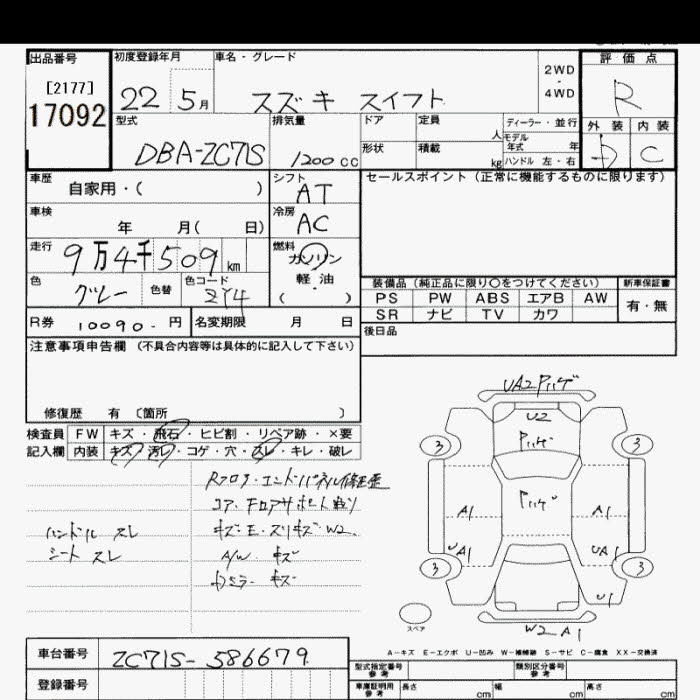 出品番号 初度登録年月 車名・グレード 評価点
[2177] 2WD
・
4WD
17092 22 5月 スズキ スイフト R
型式 排気量 ドア 定員 人 ディーラー・並行 外装 内装
モデル年式 年
DBA-ZC71S 1200cc 形状 積載 kg ハンドル 左・右 D C
車歴 自家用・( ) シフト AT セールスポイント(正常に機能するものに限ります)
車検 年 月( 日) 冷房 AC
走行 9万4千509km 燃料 ガソリン
軽油
( )
色 グレー 色替 色コード ZY4
装備品(純正品に限り〇をつけてください) 新車保証書
PS PW ABS エアB AW 有・無
SR ナビ TV カワ
R券 10090.円 名変期限 月 日
後日品
注意事項申告欄(不具合内容等は具体的に記入して下さい)
修復歴 有 〔箇所 〕
検査員 FW キズ・飛石・ヒビ割・リペア跡・×要
記入欄 内装 キズ・汚レ・コゲ・穴・スレ・キレ・破レ
Rフロア・エンドパネル修正歪
コア・Fロアサポート
ハンドル スレ キズ・E・スリキズ・W2.
シート スレ A/W キズ
ミラー キズ
UA2
U2
3 3
A1 A1
UA1 UA1
3 3
U1
スペア
W2 A1
A-キズ E-エクボ U-凹み W-補修跡 S-サビ C-腐食 XX-交換済
車台番号 ZC71S-586679
型式指定番号 参考 類別区分番号 参考
登録番号 車庫証明用 参考 長さ cm 幅 cm 高さ cm